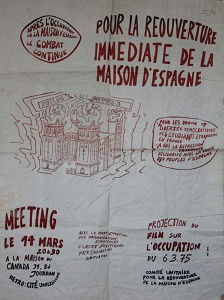 APRÈS L'OCCUPATION
DE LA MAISON D'ESPAGNE
LE COMBAT
CONTINUE
POUR LA REOUVERTURE
IMMEDIATE DE LA
MAISON D'ESPAGNE
POUR LES DROITS ET
LIBERTES DEMOCRATIQUES
DES ETUDIANTS ETRANGERS
EN FRANCE
SOLIDARITE AVEC LA LUTTE
DES PEUPLES D'ESPAGNE
MEETING
LE 14 MARS
20H30
A LA MAISON DU
CANADA 31, Bd
JOURDAN
METRO: CITE UNIVERSITAIRE
AVEC LA PARTICIPATION
DES ORGANISATIONS
PROJECTION DU
FILM SUR
L'OCCUPATION
DU 6.3.75
COMITE UNITAIRE
POUR LA REOUVERTURE
DE LA MAISON D'ESPAGNE